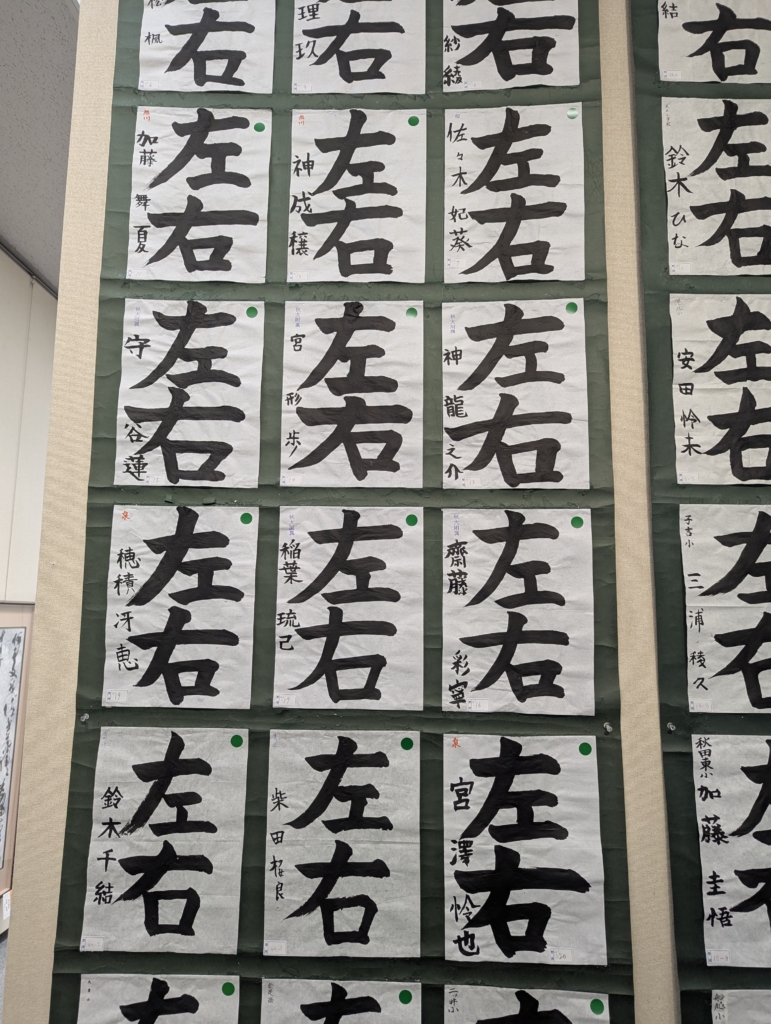 楓
右
理玖
右
紗綾
右
結
右
加藤 舞夏
左右
神成 穣
左右
佐々木 妃葵
左右
鈴木 ひな
左右
守谷 蓮
左右
宮形 歩
左右
神 龍之介
左右
安田 怜未
左右
泉
穂積 冴恵
左右
稲葉 琉己
左右
齋藤 彩寧
左右
子吉小
三浦 稜久
左右
鈴木 千結
左右
柴田 桜良
左右
泉
宮澤 怜也
左右
秋田東小
加藤 圭悟
左右